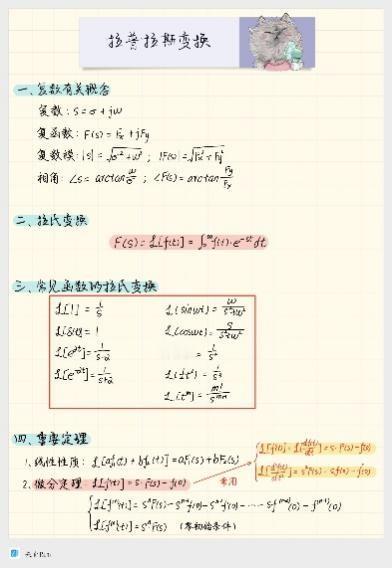 拉普拉斯变换
一、复数有关概念
复数: s = σ + jω
复函数: F(s) = Fx + jFy
复数模: |s| = √(σ²+ω²) ; |F(s)| = √(Fx²+Fy²)
相角: ∠s = arctan ω/σ ; ∠F(s) = arctan Fy/Fx
二、拉氏变换
F(s) = L[f(t)] = ∫₀^∞ f(t)·e^(-st) dt
三、常见函数的拉氏变换
L[1] = 1/s
L[δ(t)] = 1
L[e^(at)] = 1/(s-a)
L[e^(-at)] = 1/(s+a)
L(sinωt) = ω/(s²+ω²)
L(cosωt) = s/(s²+ω²)
= 1/s²
L(½t²) = 1/s³
L[t^n] = n!/s^(n+1)
四、重要定理
1. 线性性质: L[af₁(t) + bf₂(t)] = aF₁(s) + bF₂(s)
2. 微分定理: L[f'(t)] = s·F(s) - f(0)
常用
L[f'(t)] = L[df(t)/dt] = s·F(s) - f(0)
= s²F(s) - sf(0) - f'(0)
L[fⁿ(t)] = sⁿF(s) - sⁿ⁻¹f(0) - sⁿ⁻²f'(0) - …… - sf⁽ⁿ⁻²⁾(0) - f⁽ⁿ⁻¹⁾(0)
L[fⁿ(t)] = sⁿF(s) (零初始条件)